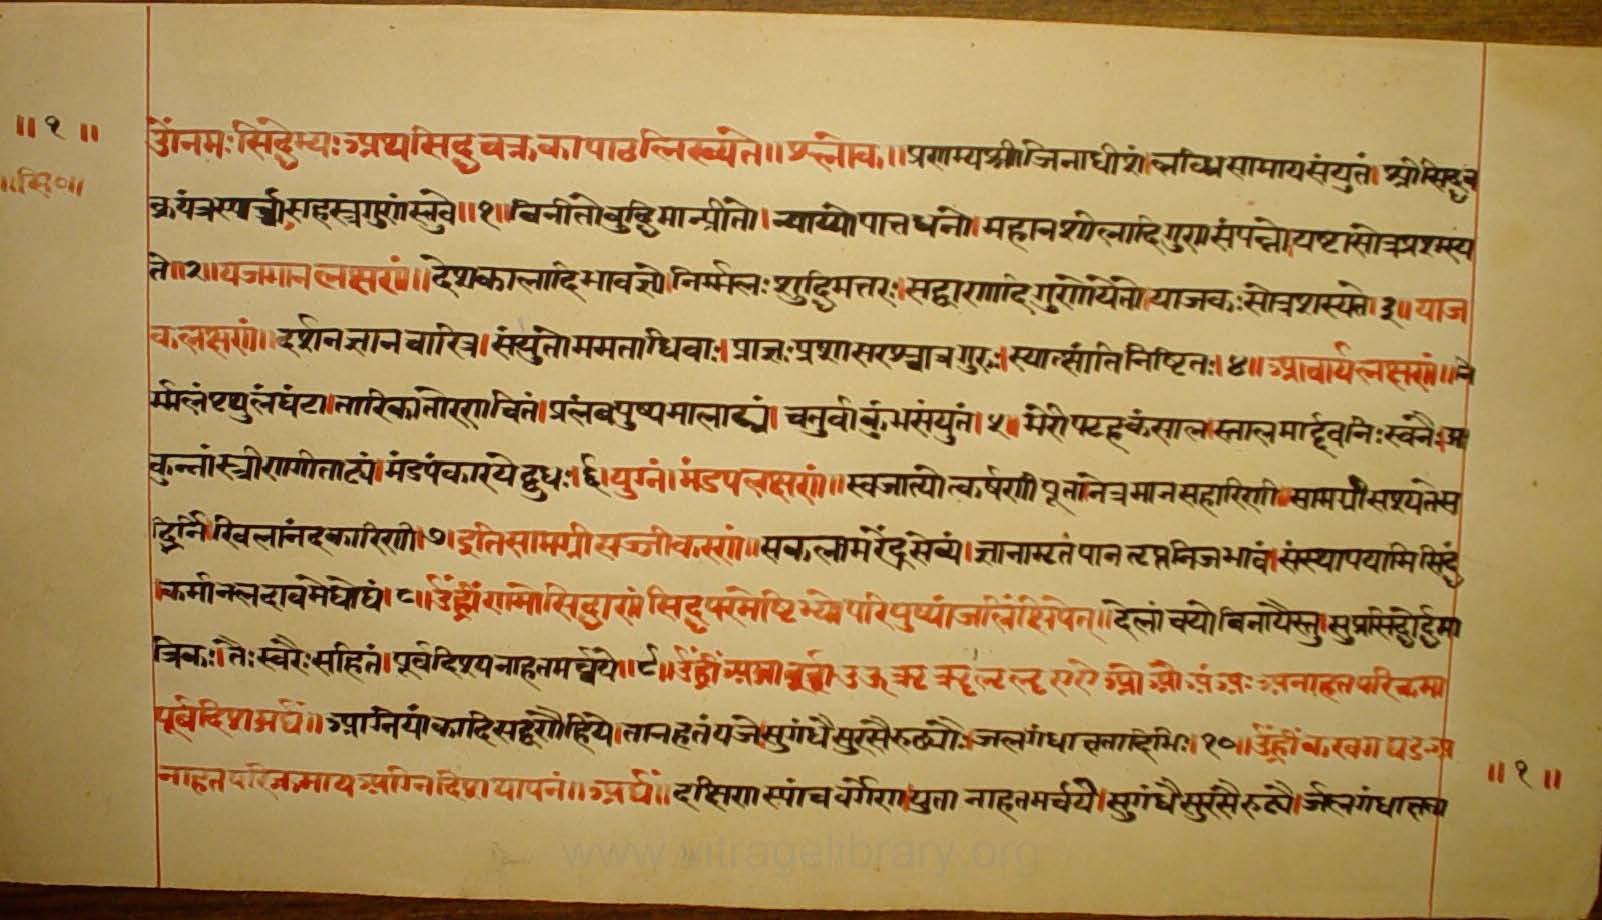 ॥१॥
॥सि०॥
ॐनमःसिद्धेभ्यः अथसिद्धचक्रकापाठलिख्यते॥श्लोक॥प्रणम्यश्रीजिनाधीशं।लब्धिसामायसंयुतं।श्रीसिद्धच
क्रयंत्रस्यार्च्चासहस्त्रगुणंस्तुवे॥१॥विनीतोबुद्धिमान्प्रीतो।न्यायोपात्तधनो।महानशीलादिगुणसंपन्नो।यष्टासोत्रप्रशस्य
ते॥२॥यजमानलक्षणं॥देशकालादिभावज्ञो।निर्म्मलःशुद्धिमत्तरः।सद्वाणादिगुणोयेतो।याजकःसोत्रशस्यते।३॥याज
कलक्षणं॥दर्शनज्ञानचारित्र।संयुतोममताधिवाः।प्राज्ञःप्रशासरश्चात्रगुरुः।स्यात्सांतिनिष्टितः।४॥आचार्यलक्षणं॥नि
र्म्मलंपृथुलंघंटा।तारिकातोरणाचितं।प्रलंबपुष्पमालाढ्यं।चतुर्वाकुंभसंयुतं।५॥भेरीपटहकंसाल।स्तालमार्द्दवनिःस्वनैः।आ
कुलांस्त्रीरागीताढ्यं।मंडपंकारयेद्बुधः।६।युग्मं।मंडपलक्षणं॥स्वजात्योत्कर्षणीपूता।नेत्रमानसहारिणी।सामग्रीसश्यतेस
द्भिर्नि।खिलानंदकारिणी।७।इतिसामग्रीसज्जीकरणं॥सकलामरेंद्रसेव्यं।ज्ञानामृतंपानतृप्तनिजभावं।संस्थापयामिसिद्धं
।कर्मानलदावमेघौघं।८॥ॐह्रींणमोसिद्धाणंसिद्धपरमेष्टिभ्योपरिपुष्पांजलिंक्षिपेत्॥देलांक्योबिनायैस्तु।सुप्रसिद्धैर्द्दिमा
त्रिकः।तैःस्वरैःसहितं।पूर्वदिश्यनाहतमर्च्चये॥९॥ॐह्रींअआइईउऊऋॠऌॡएऐओऔअंअःअनाहतपरिक्रमा
पूर्वदिशाअर्घं॥आग्नियांकादिसद्वर्णौहिंये।तानहतंयजे।सुगंधैसुरसैरुच्यौः।जलगंधाक्षतादिभिः।१०॥ॐह्रींकखगघङअ
नाहतपरिक्रमायअग्निदिशायापनं॥अर्घं॥दक्षिणस्यांचवर्गेण।युतानाहतमर्चये।सुगंधैसुरसैरुच्यै।र्जलगंधाक्षता
॥१॥
www.vitragelibrary.org